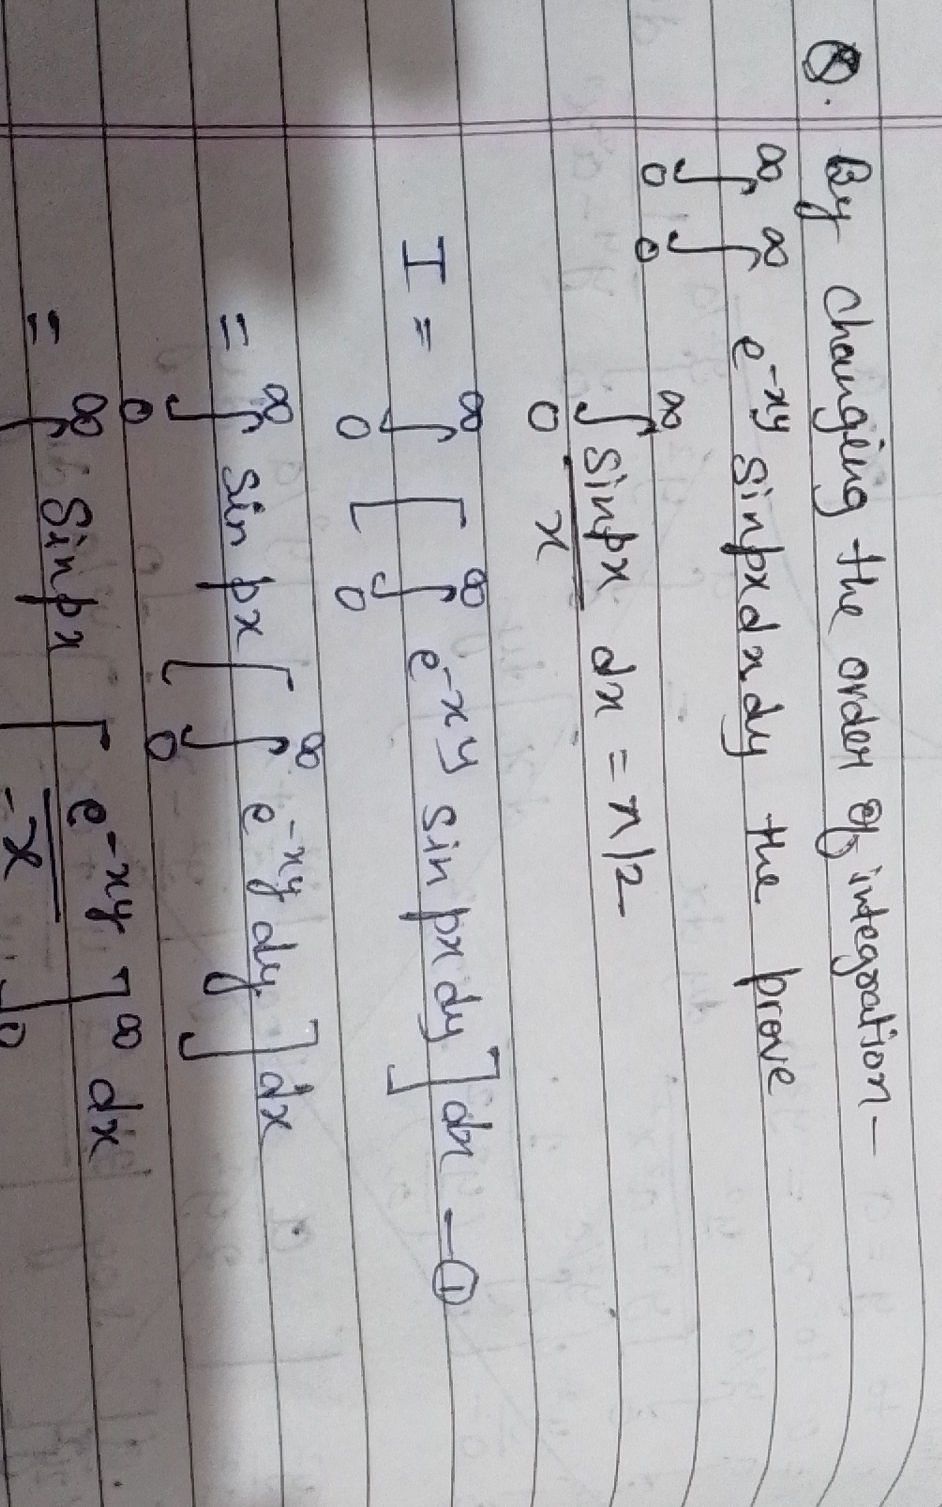 Q. By changing the order of integration-
∞∫0 ∞∫0 e^-xy sinpxdxdy the prove
∞∫0 sinpx/x dx = π/2
I = ∞∫0 [ ∞∫0 e^-xy sin pxdy ] dx - ①
= ∞∫0 sin px [ ∞∫0 e^-xy dy ] dx
= ∞∫ Sinpx [ e^-xy/-x ]∞0 dx